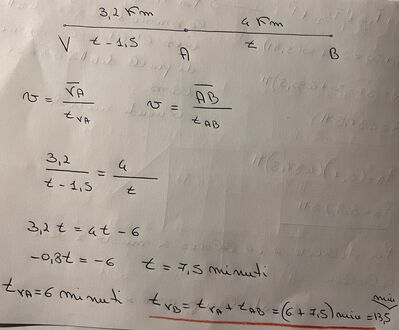 3,2 Km 4 Km
V t - 1,5 A t B
v = VA / t VA v = AB / t AB
3,2 / t - 1,5 = 4 / t
3,2 t = 4t - 6
-0,8t = -6 t = 7,5 minuti
t VA = 6 minuti t VB = t VA + t AB = (6 + 7,5) min = 13,5 min